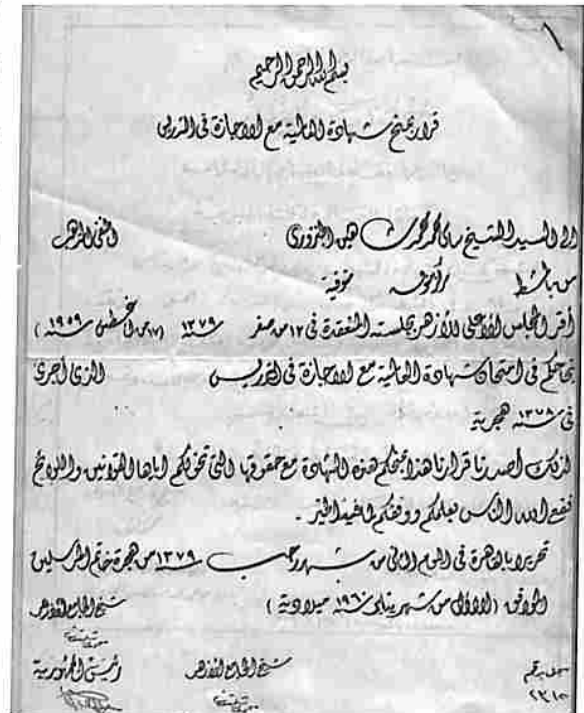 ١
بسم الله الرحمن الرحيم
قرار بمنح شهادة العالمية مع الاجازة فى التدريس
الى السيد الشيخ محمد محمد شاهين المنزورى الحنفى المذهب
من بمركز منوفية
أقر المجلس الأعلى للأزهر بجلسته المنعقدة فى ١٢ من صفر سنة ١٣٧٩ (١٧ من أغسطس سنة ١٩٥٩)
نجاحكم فى امتحان شهادة العالمية مع الاجازة فى التدريس الذى أجرى
فى سنة ١٣٧٨ هجرية
لذلك أصدرنا قرارنا هذا بمنحكم هذه الشهادة مع حقوقها التى تخولكم اياها القوانين واللوائح
نفع الله الناس بعلمكم ووفقكم لما فيه الخير .
تحريرا بالقاهرة فى اليوم الثانى من شهر رجب سنة ١٣٧٩ من هجرة خاتم المرسلين
الموافق (الاول من شهر يناير سنة ١٩٦٠ ميلادية)
شيخ الجامع الأزهر
سجل برقم شيخ الجامع الأزهر رئيس الجمهورية
٢٣١٥